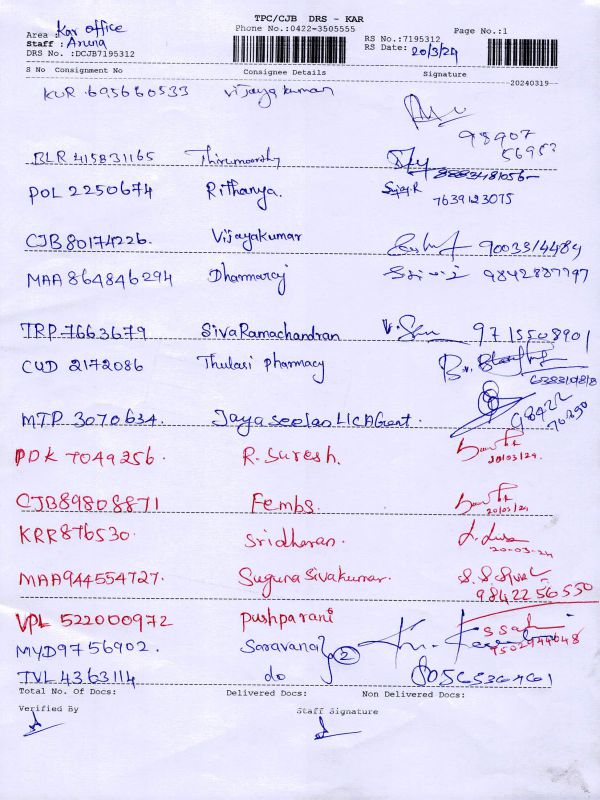 TPC/CJB DRS - KAR
Area : Kar office Phone No.:0422-3505555 Page No.:1
Staff : Aruna RS No.:7195312
DRS No. :DCJB7195312 RS Date: 20/3/24
S No Consignment No Consignee Details Signature
20240319
KUR 695680533 Vijaya kumar
98907
BLR 415831165 Thirumoorthy
POL 2250674 Rithanya. 7639123075
CJB 80174226. Vijayakumar 9003314484
MAA 864846294 Dharmaraj 9842887797
TRP 7663679 SivaRamachandran 9715508901
CUD 2172086 Thulasi pharmacy
MTP 3070634. Jayaseelan LIC Agent. 98422
PDK 7049256. R. Suresh. 20/03/24.
CJB89808871 Fembs. 20/03/24
KRR876530. Sridharan. 20-03-24
MAA944554727. Suguna Sivakumar. 98422 56550
VPL 522000972 pushparani
MYD9756902. Saravana 2
TVL 4363114 do
Total No. Of Docs: Delivered Docs: Non Delivered Docs:
Verified By Staff Signature